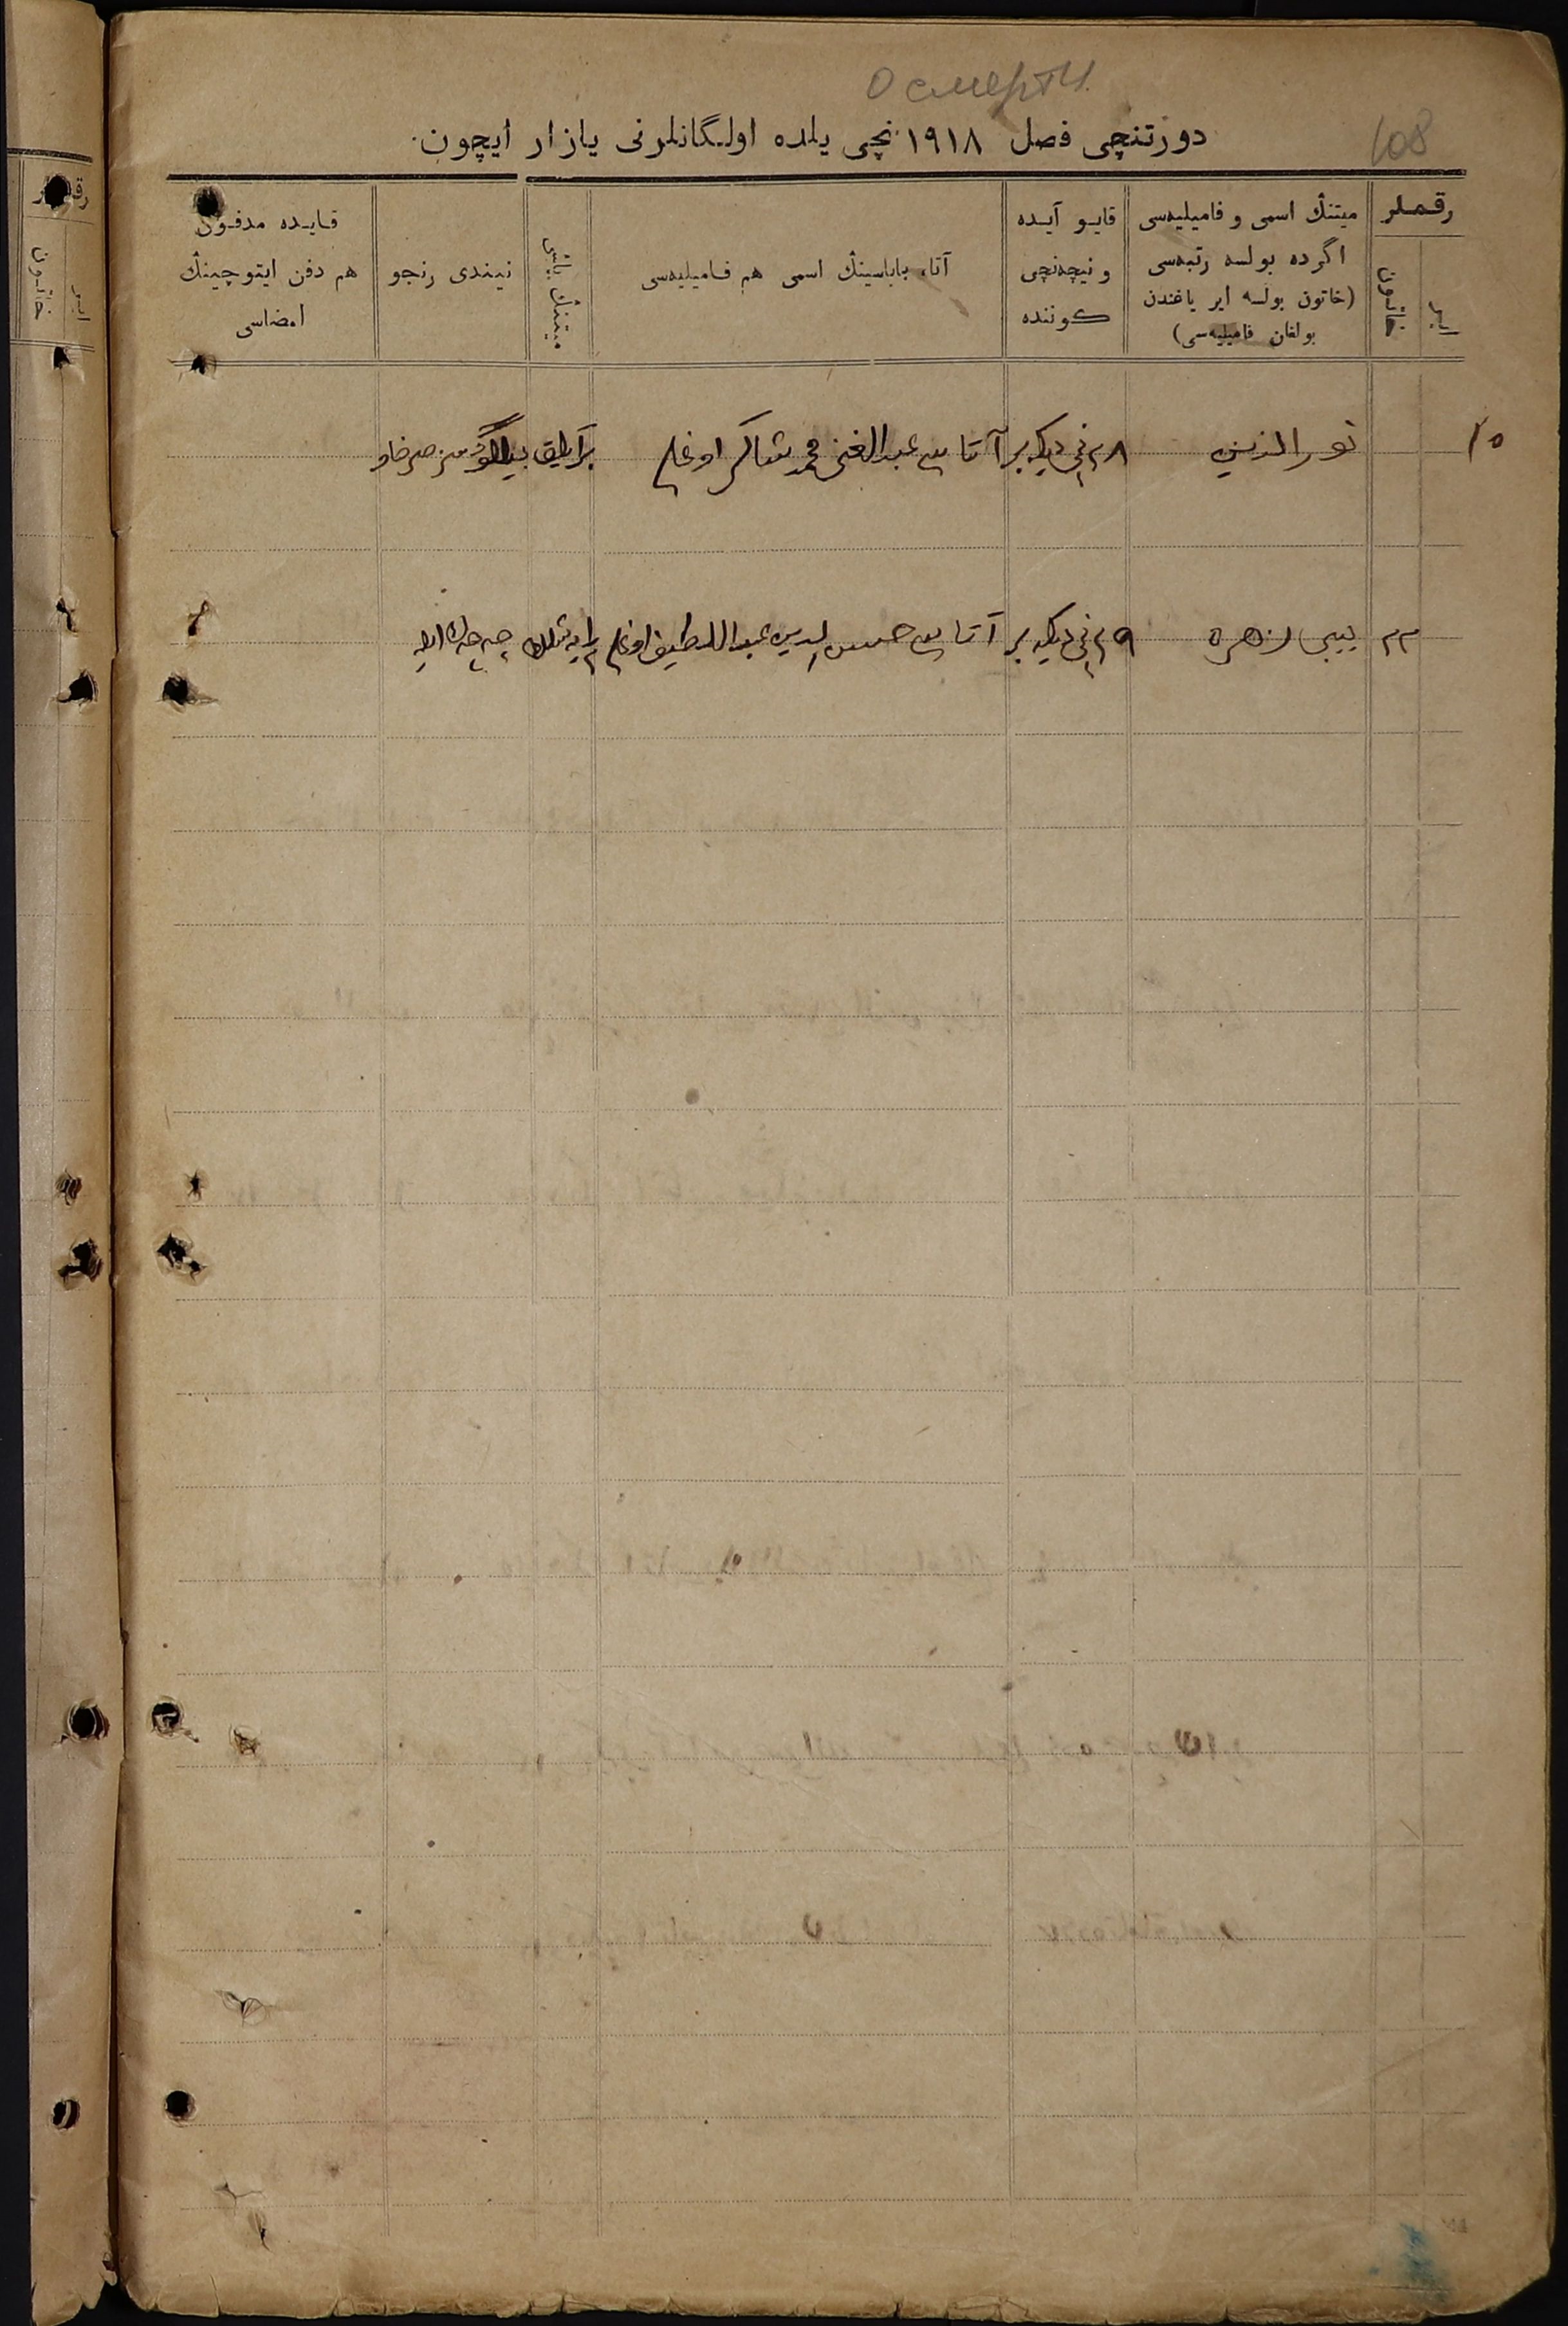 О смерти.
108
دورتنچی فصل ۱۹۱۸ نچی یلده اولگانلرنی یازار ایچون.
رقملر
ایر
خاتون
میتنڭ اسمی و فامیلیه‌سی
اگرده بولسه رتبه‌سی
(خاتون بولسه ایر یاغندن
بولغان فامیلیه‌سی)
قایو آیده
و نیچه‌نچی
كوننده
آتا، باباسینڭ اسمی هم فامیلیه‌سی
میتنڭ یاشی
نیندی رنجو
قایده مدفون
هم دفن ایتوچینڭ
امضاسی
۱۵ نورالدین ۲۸ نچی دیكه‌بر آتاسی عبدالغنی محمد شاكر اوغلی
۲۲ بیبی زهره ۲۹ نچی دیكه‌بر آتاسی حسن الدین عبداللطیف اوغلی ۲ یاشلك چه‌چك ایله